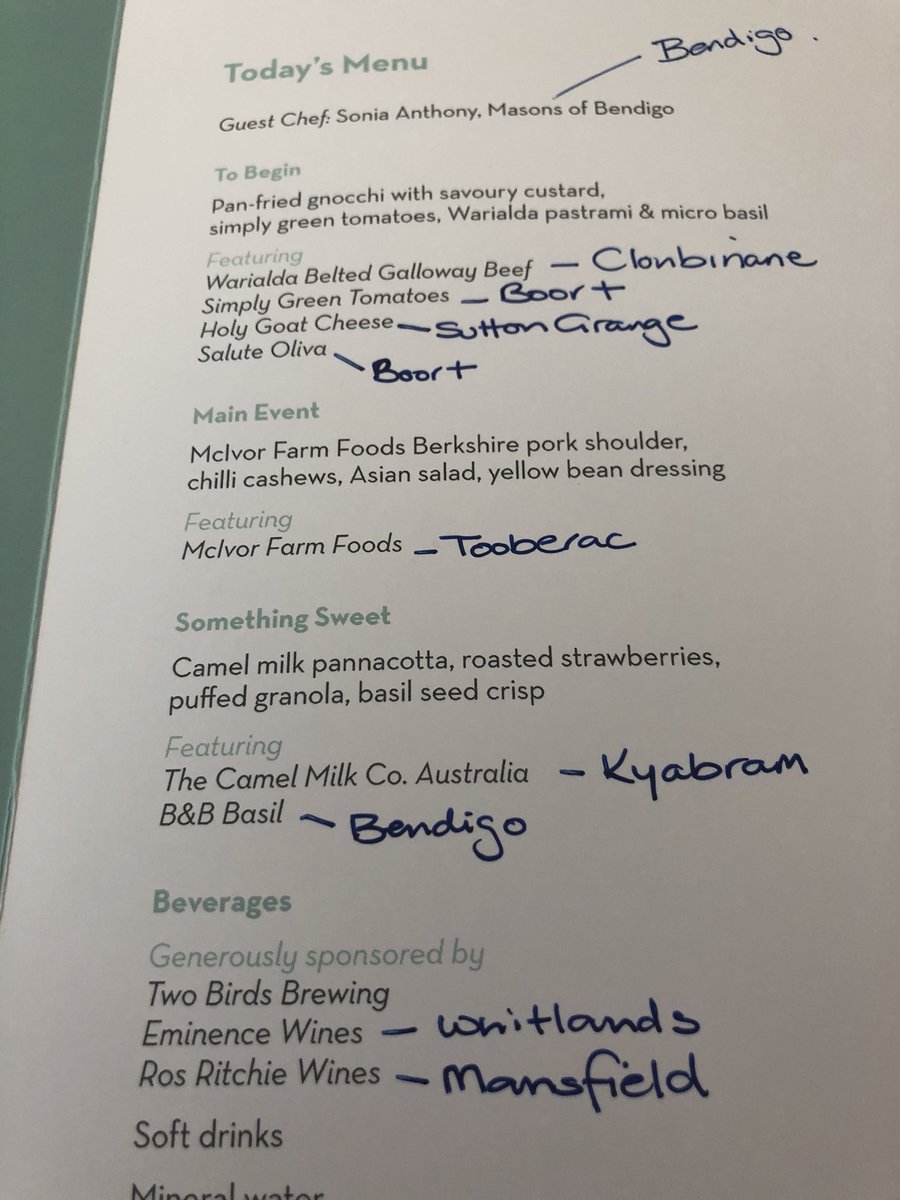 Bendigo.
Today's Menu
Guest Chef: Sonia Anthony, Masons of Bendigo
To Begin
Pan-fried gnocchi with savoury custard,
simply green tomatoes, Warialda pastrami & micro basil
Featuring
Warialda Belted Galloway Beef – Clonbinane
Simply Green Tomatoes – Boort
Holy Goat Cheese – Sutton Grange
Salute Oliva
Boort
Main Event
McIvor Farm Foods Berkshire pork shoulder,
chilli cashews, Asian salad, yellow bean dressing
Featuring
McIvor Farm Foods – Tooberac
Something Sweet
Camel milk pannacotta, roasted strawberries,
puffed granola, basil seed crisp
Featuring
The Camel Milk Co. Australia – Kyabram
B&B Basil – Bendigo
Beverages
Generously sponsored by
Two Birds Brewing
Eminence Wines – Whitlands
Ros Ritchie Wines – Mansfield
Soft drinks
Mineral water